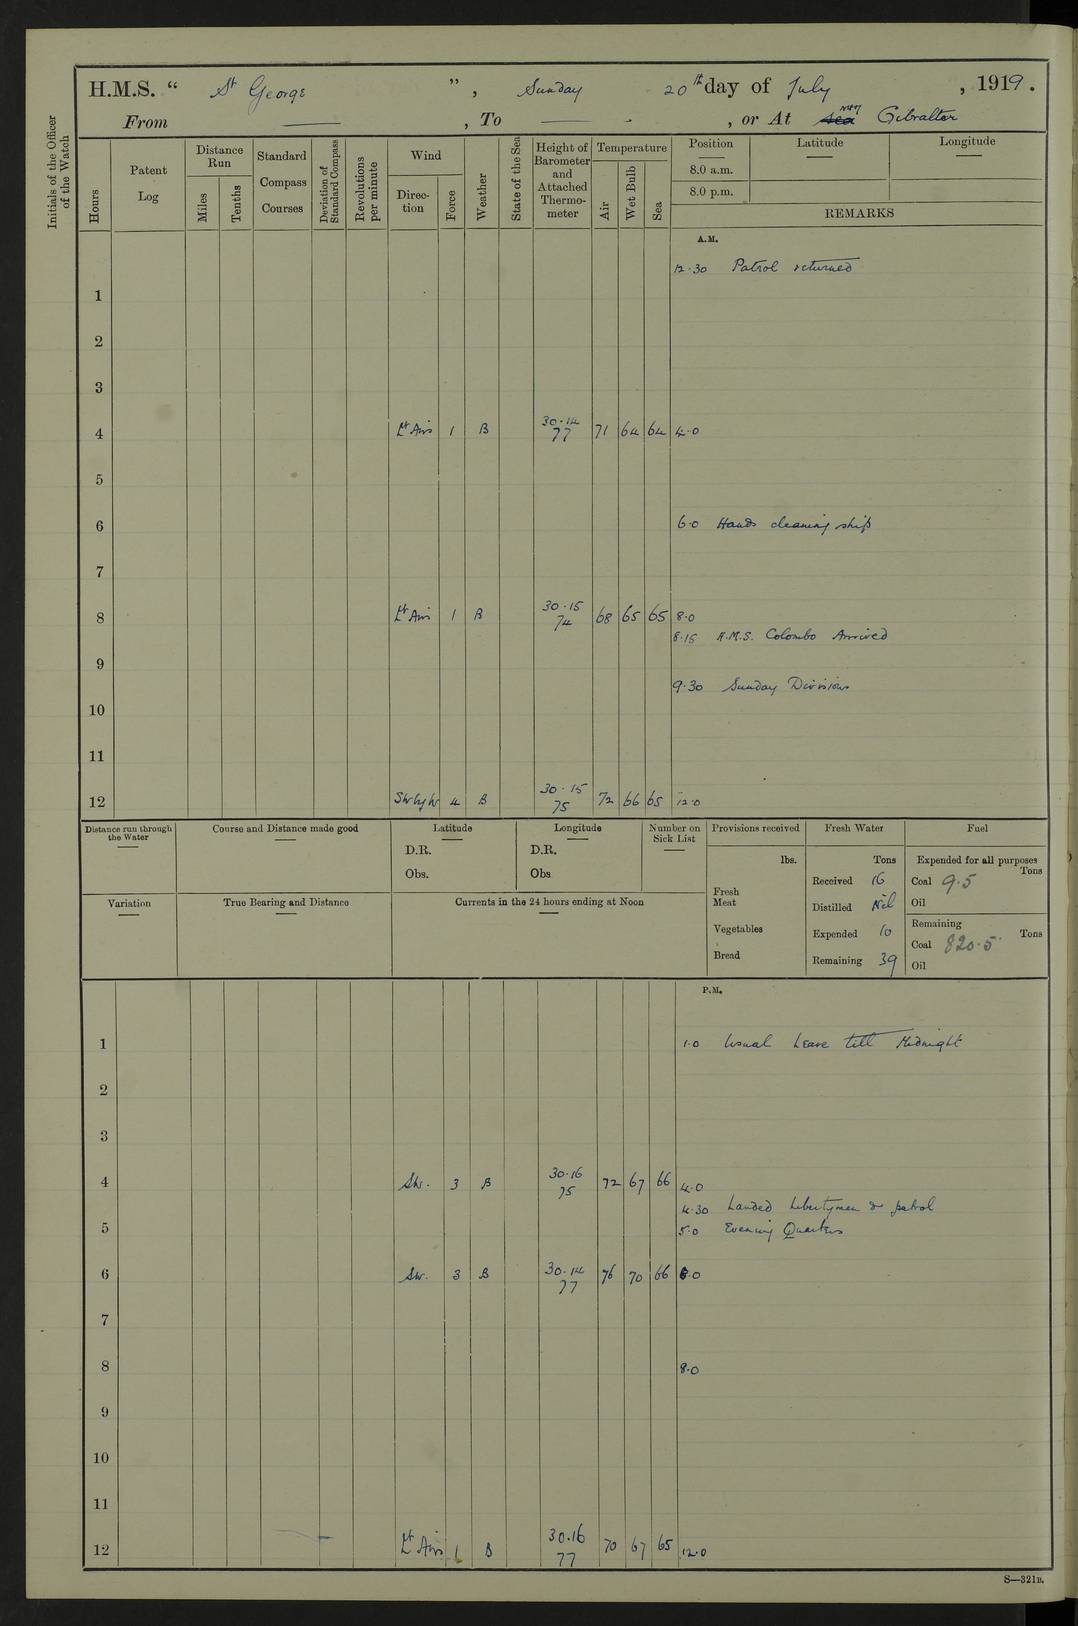 H.M.S. “ St George ”, Sunday 20th day of July, 1919.
From —— , To —— - , or At sea Gibraltar
Initials of the Officer of the Watch
Hours
Patent Log
Distance Run
Miles
Tenths
Standard Compass Courses
Deviation of Standard Compass
Revolutions per minute
Wind
Direc-tion
Force
Weather
State of the Sea
Height of Barometer and Attached Thermo-meter
Temperature
Air
Wet Bulb
Sea
Position
8.0 a.m.
8.0 p.m.
Latitude
Longitude
REMARKS
A.M.
12.30 Patrol returned
1
2
3
4 Lt Airs 1 B 30.14 77 71 64 64 4.0
5
6 6.0 Hands cleaning ship
7
8 Lt Airs 1 B 30.15 74 68 65 65 8.0
8.15 H.M.S. Colombo Arrived
9
9.30 Sunday Divisions
10
11
12 SWbyW 4 B 30.15 75 72 66 65 12.0
Distance run through the Water
Course and Distance made good
Latitude
D.R.
Obs.
Longitude
D.R.
Obs
Number on Sick List
Provisions received
lbs.
Fresh Meat
Vegetables
Bread
Fresh Water
Tons
Received 16
Distilled Nil
Expended 10
Remaining 39
Fuel
Expended for all purposes
Tons
Coal 9.5
Oil
Remaining
Tons
Coal 820.5
Oil
Variation
True Bearing and Distance
Currents in the 24 hours ending at Noon
P.M.
1 1.0 Usual Leave till Midnight
2
3
4 SW. 3 B 30.16 75 72 67 66 4.0
4.30 Landed libertymen & patrol
5 5.0 Evening Quarters
6 SW. 3 B 30.14 77 76 70 66 6.0
7
8 8.0
9
10
11
12 Lt Airs 1 B 30.16 77 70 67 65 12.0
S—321B.